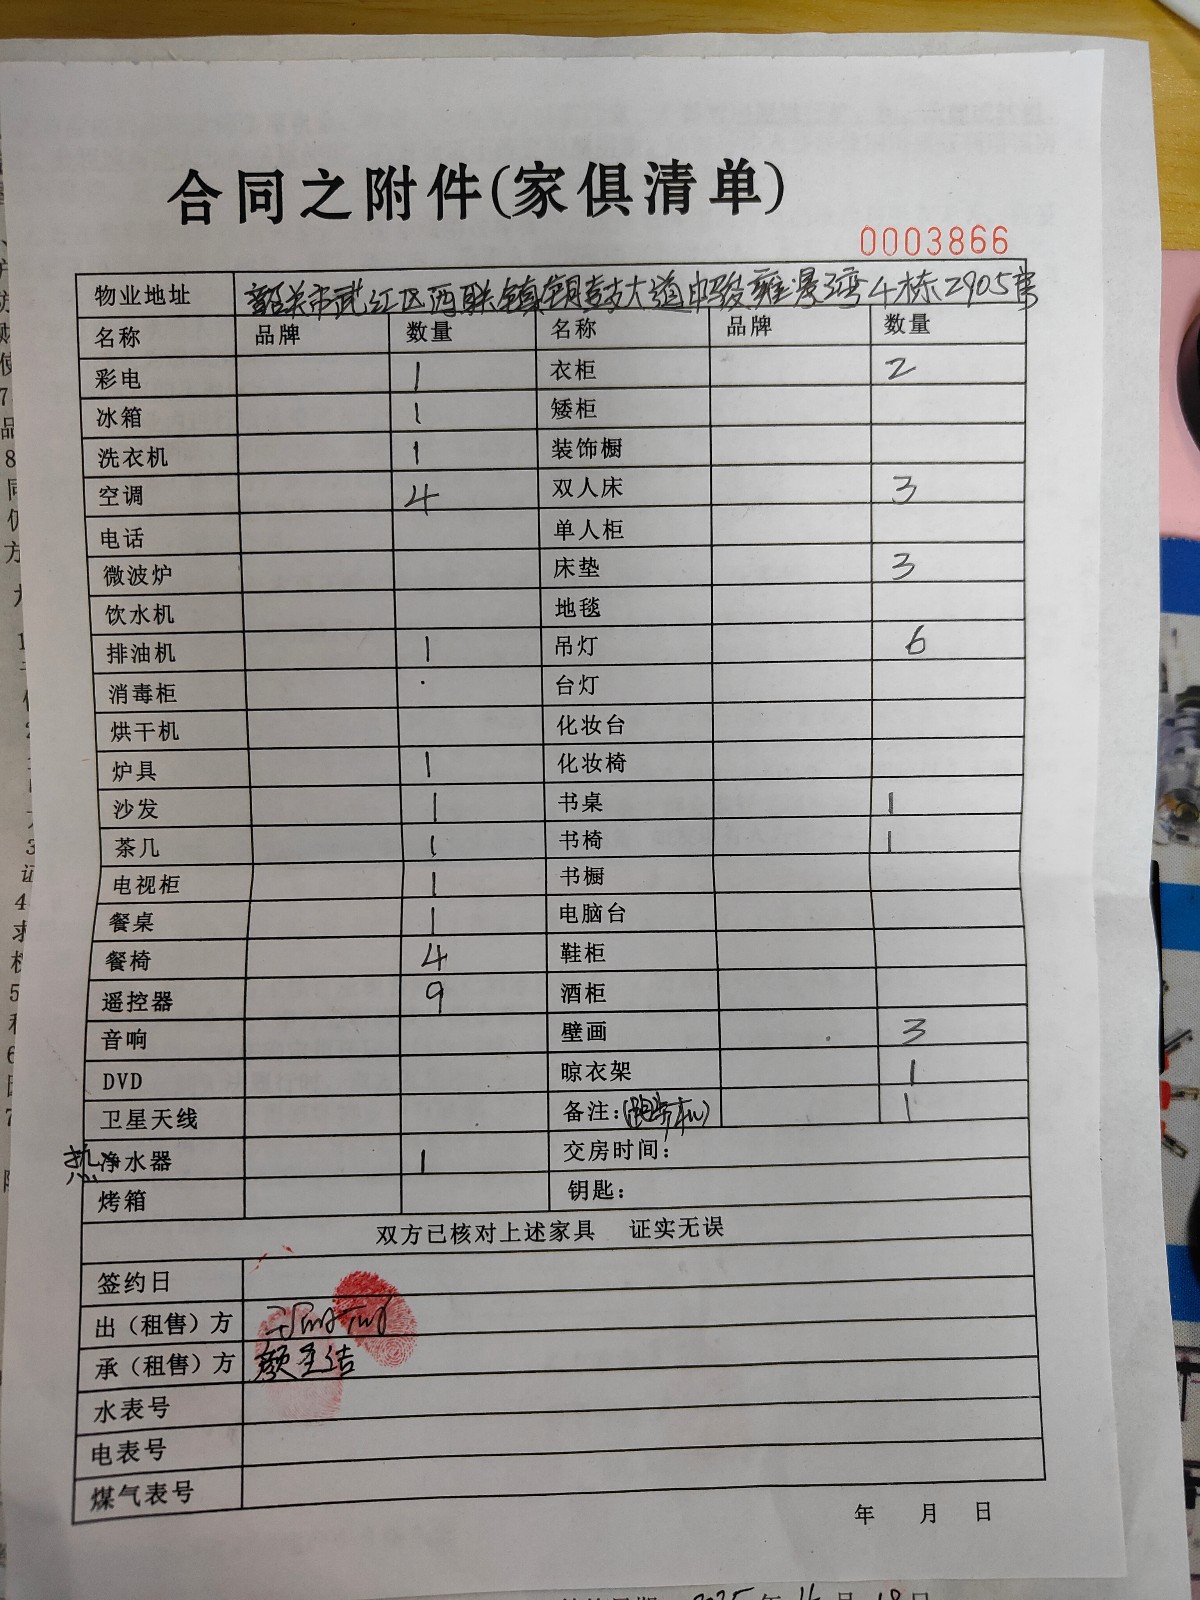 合同之附件(家俱清单)
0003866
物业地址 韶关市武江区西联镇铜鼓大道中骏雍景湾4栋2905房
名称 品牌 数量 名称 品牌 数量
彩电 1 衣柜 2
冰箱 1 矮柜
洗衣机 1 装饰橱
空调 4 双人床 3
电话 单人柜
微波炉 床垫 3
饮水机 地毯
排油机 1 吊灯 6
消毒柜 台灯
烘干机 化妆台
炉具 1 化妆椅
沙发 1 书桌 1
茶几 1 书椅 1
电视柜 1 书橱
餐桌 1 电脑台
餐椅 4 鞋柜
遥控器 9 酒柜
音响 壁画 3
DVD 晾衣架 1
卫星天线 备注:(跑步机) 1
热净水器 1 交房时间:
烤箱 钥匙:
双方已核对上述家具 证实无误
签约日
出（租售）方
承（租售）方 颜
水表号
电表号
煤气表号
年 月 日
2025年 月18日